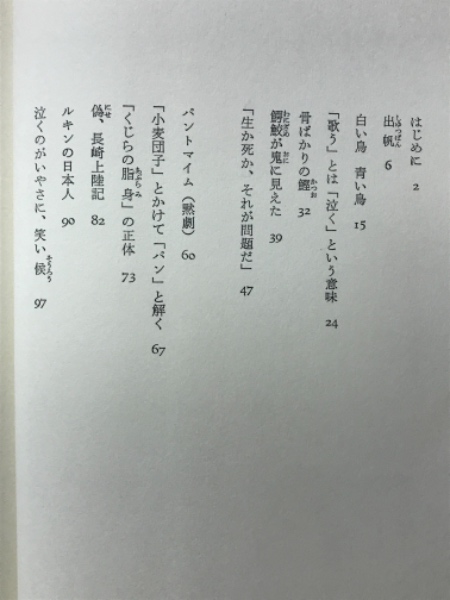 はじめに 2
出帆 6
白い鳥 青い鳥 15
「歌う」とは「泣く」という意味 24
骨ばかりの鰹 32
鰐鮫が鬼に見えた 39
「生か死か、それが問題だ」 47
パントマイム（黙劇） 60
「小麦団子」とかけて「パン」と解く 67
「くじらの脂身」の正体 73
偽、長崎上陸記 82
ルキンの日本人 90
泣くのがいやさに、笑い候 97